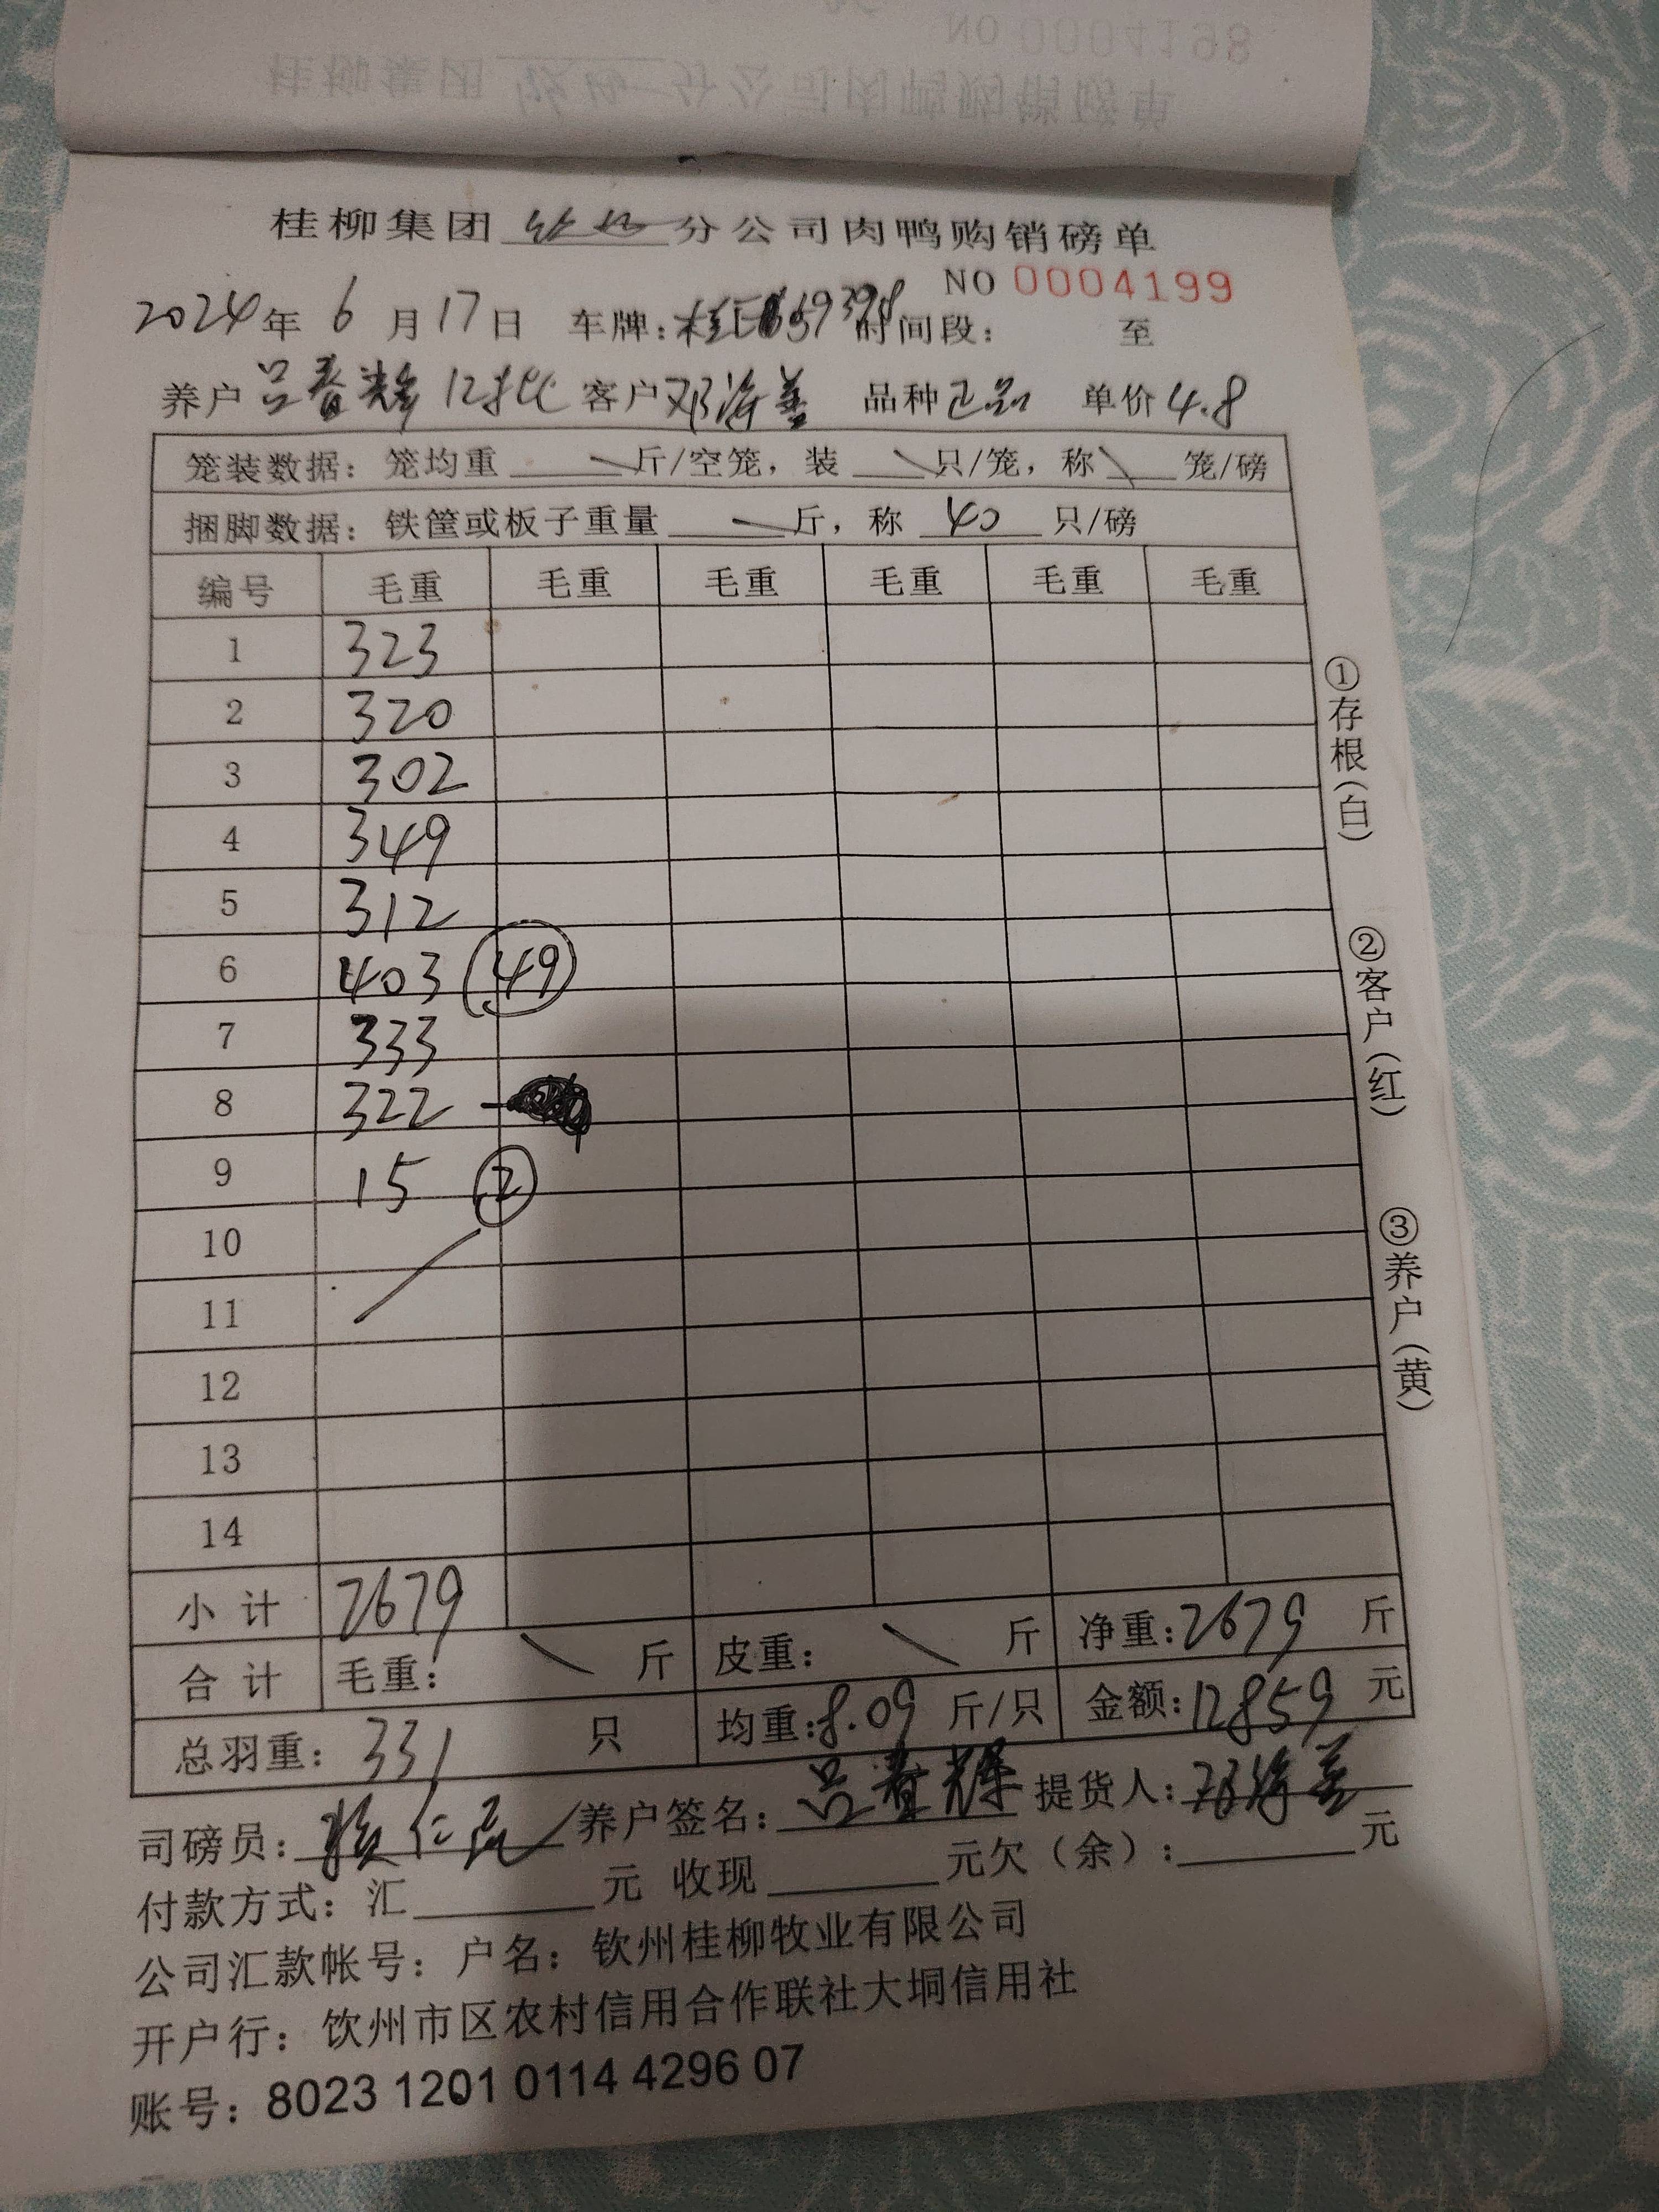 NO 0004198
桂柳集团 分公司肉鸭购销磅单
桂柳集团 分公司肉鸭购销磅单
NO 0004199
2024年 6 月 17 日 车牌: 时间段: 至
养户 吕春辉 12批 客户 邓海善 品种 正品 单价 4.8
笼装数据: 笼均重 斤/空笼, 装 只/笼, 称 笼/磅
捆脚数据: 铁筐或板子重量 斤, 称 40 只/磅
编号 毛重 毛重 毛重 毛重 毛重 毛重
1 323
2 320
3 302
4 349
5 312
6 403 49
7 333
8 322
9 15 2
10
11
12
13
14
小计 2679
合计 毛重: 斤 皮重: 斤 净重: 2679 斤
总羽重: 331 只 均重: 8.09 斤/只 金额: 12859 元
司磅员: 养户签名: 吕春辉 提货人: 邓海善
付款方式: 汇 元 收现 元欠(余): 元
公司汇款帐号: 户名: 钦州桂柳牧业有限公司
开户行: 饮州市区农村信用合作联社大垌信用社
账号: 8023 1201 0114 4296 07
①存根(白)
②客户(红)
③养户(黄)